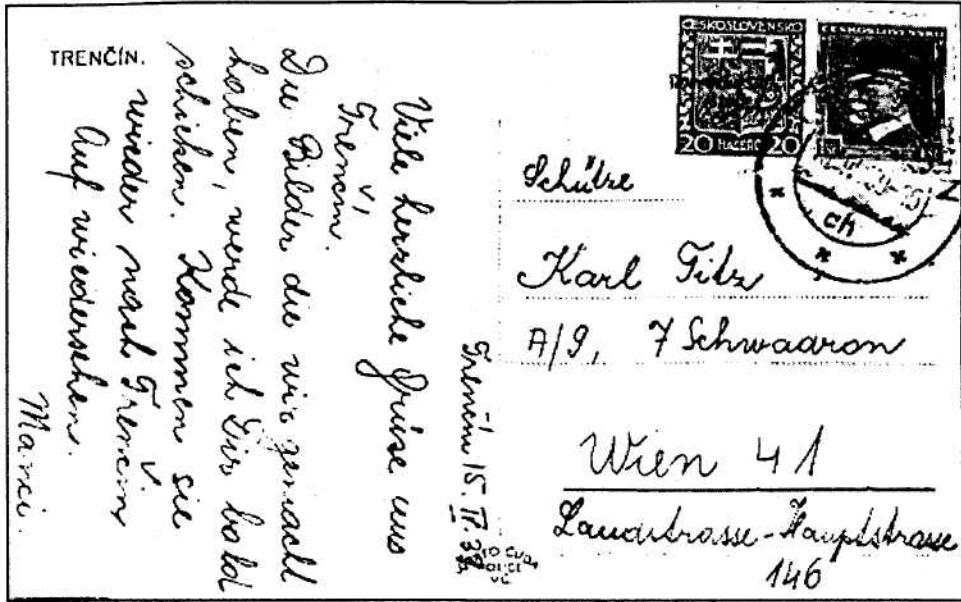 TRENČÍN.
Viele herzliche Grüse aus
Trenčin.
Die Bilder die wir gemacht
haben, werde ich Dir bald
schicken. Kommen sie
wieder nach Trenčin
Auf wiedersehen.
Manci.
Trenčin 15. IV. 39
ČESKOSLOVENSKO
20 HALÉŘŮ 20
ČESKOSLOVENSKO
Schütze
Karl Titz
A/9, 7 Schwadron
Wien 41
Landstrasse-Hauptstrasse
146